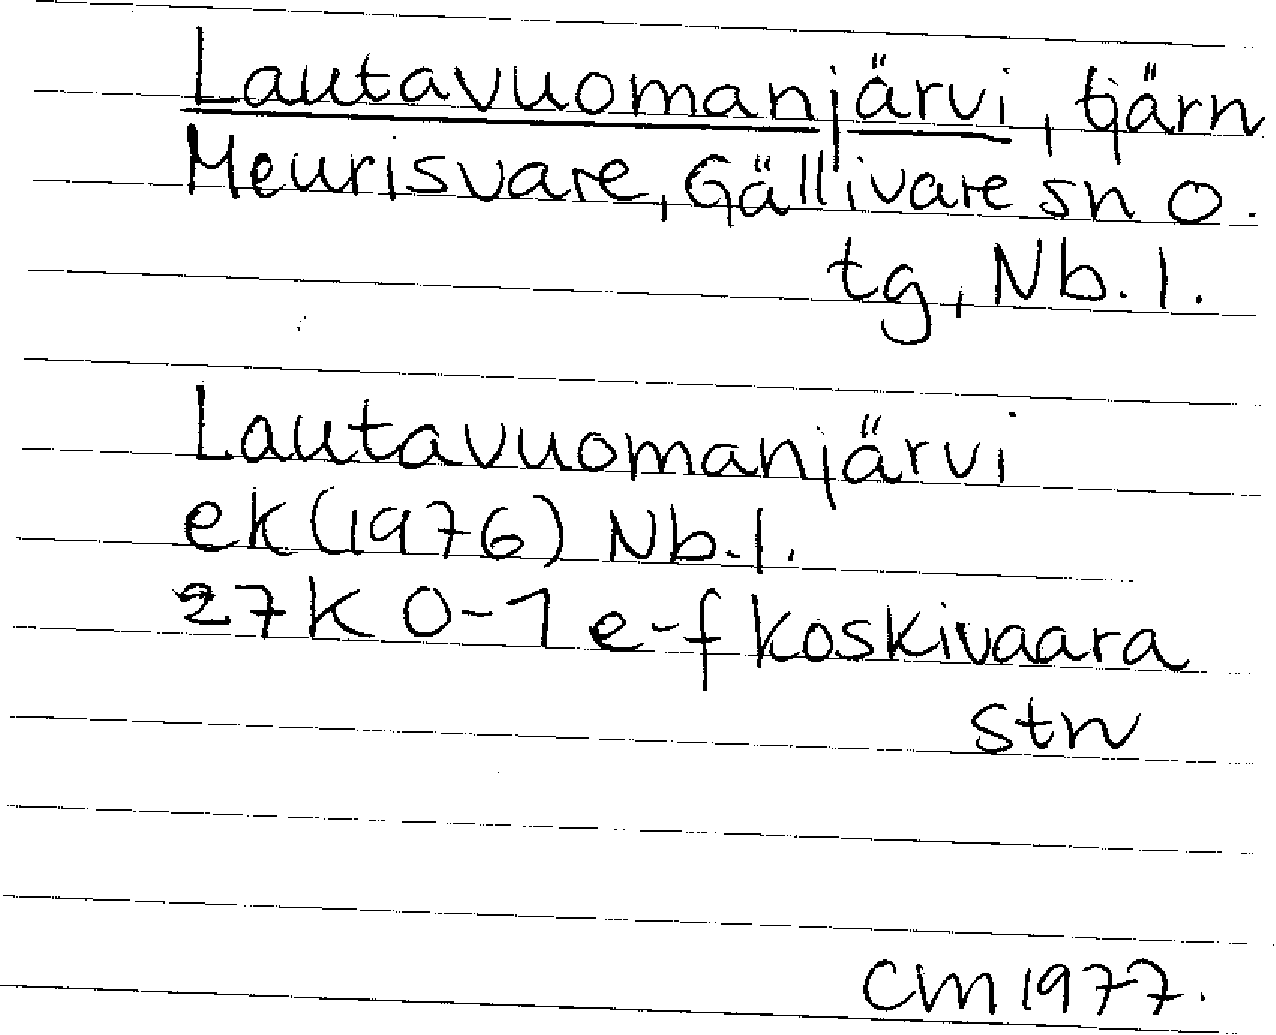 Lautavuomanjärvi, tjärn
Meurisvare, Gällivare sn o.
tg, Nb. l.
Lautavuomanjärvi
ek (1976) Nb. l.
27K 0-1 e-f Koskivaara
stn
CM 1977.